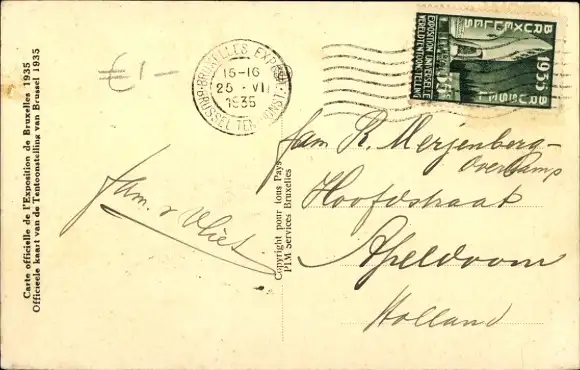 Carte officielle de l'Exposition de Bruxelles 1935
Officieele kaart van de Tentoonstelling van Brussel 1935
€1-
BRUXELLES EXPOSITION
15-16
25 VII
1935
BRUSSEL TENTOONST
BRUXELLES
1935
BRUSSEL
EXPOSITION UNIVERSELLE
WERELDTENTOONSTELLING
Fam. v Vliet
Copyright pour tous Pays
PIM Services Bruxelles
Fam R. Merjenberg-
Overkamp
Hoofdstraat
Apeldoorn
Holland